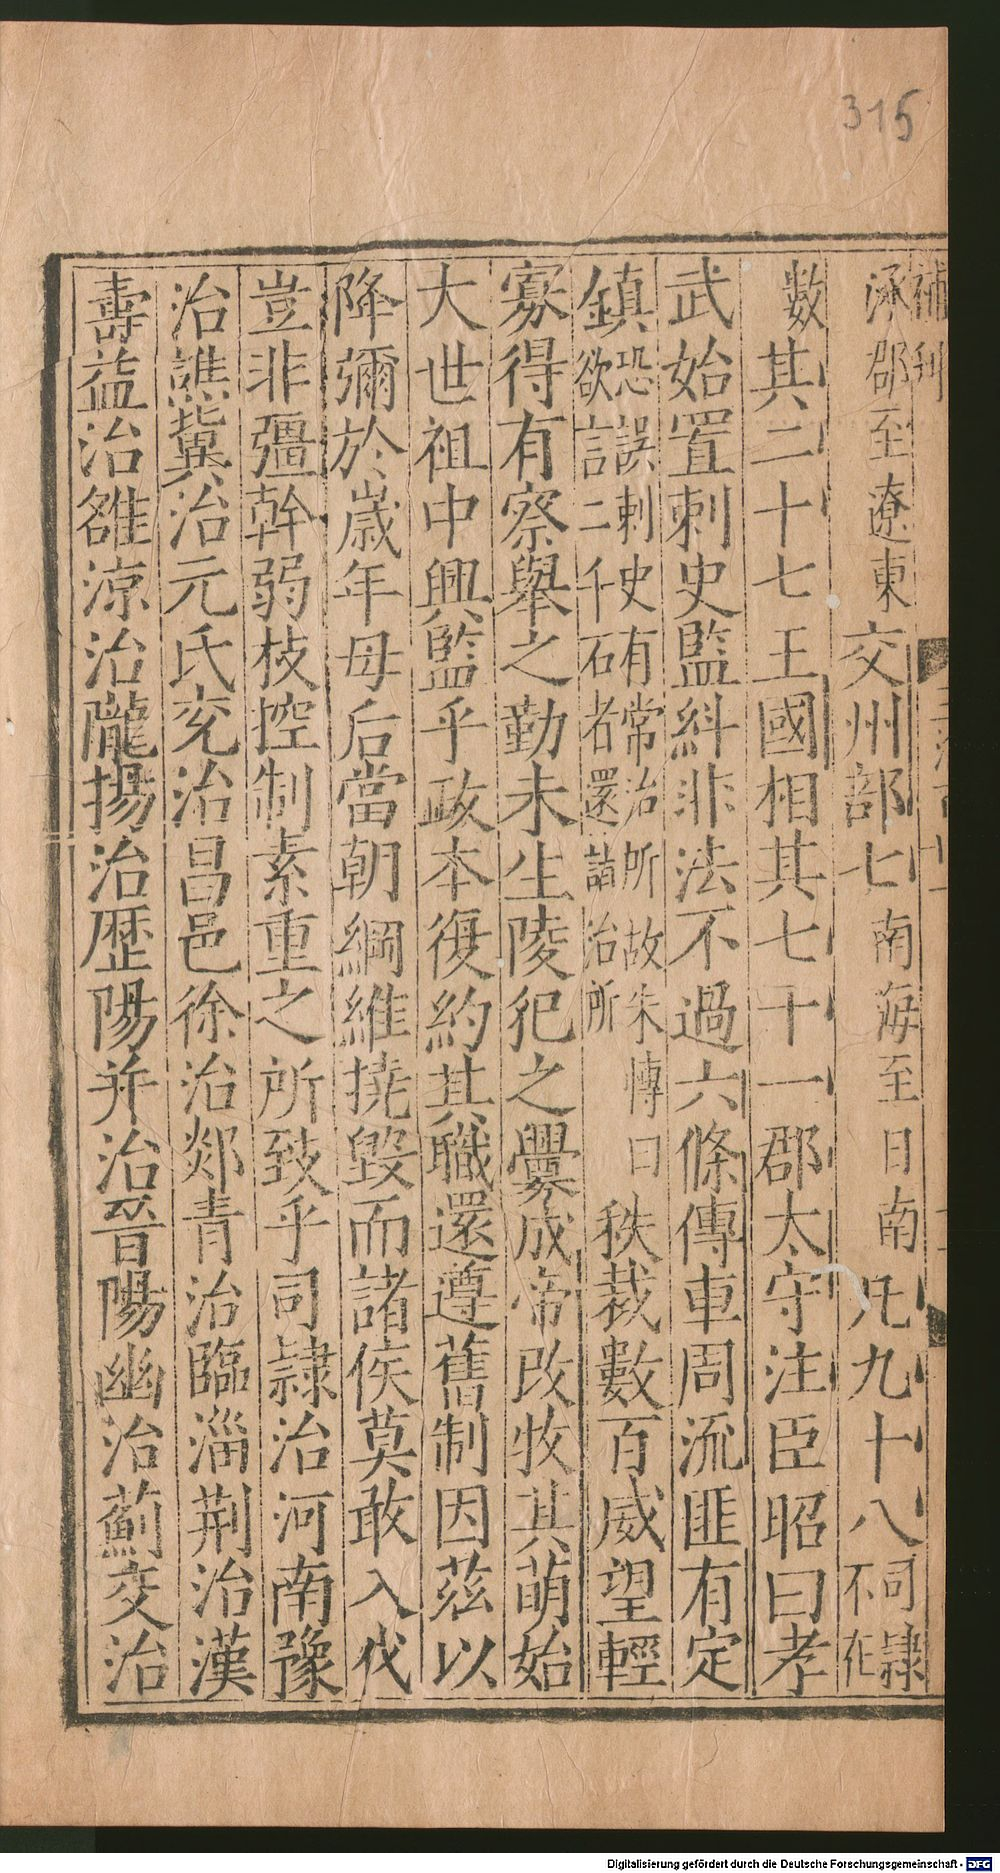 315
補刊
涿郡至遼東交州部七南海至日南凡九十八司隸不在
數其二十七王國相其七十一郡太守注臣昭曰孝
武始置刺史監糾非法不過六條傳車周流匪有定
鎮恐誤刺史有常治所故朱博曰欲言二千石者還詣治所秩裁數百威望輕
寡得有察舉之勤未生陵犯之釁成帝改牧其萌始
大世祖中興監乎政本復約其職還遵舊制因茲以
降彌於歲年母后當朝綱維撓毀而諸侯莫敢入伐
豈非彊幹弱枝控制素重之所致乎司隸治河南豫
治譙冀治元氏兗治昌邑徐治郯青治臨淄荆治漢
壽益治雒涼治隴揚治歷陽并治晉陽幽治薊交治
Digitalisierung gefördert durch die Deutsche Forschungsgemeinschaft - DFG